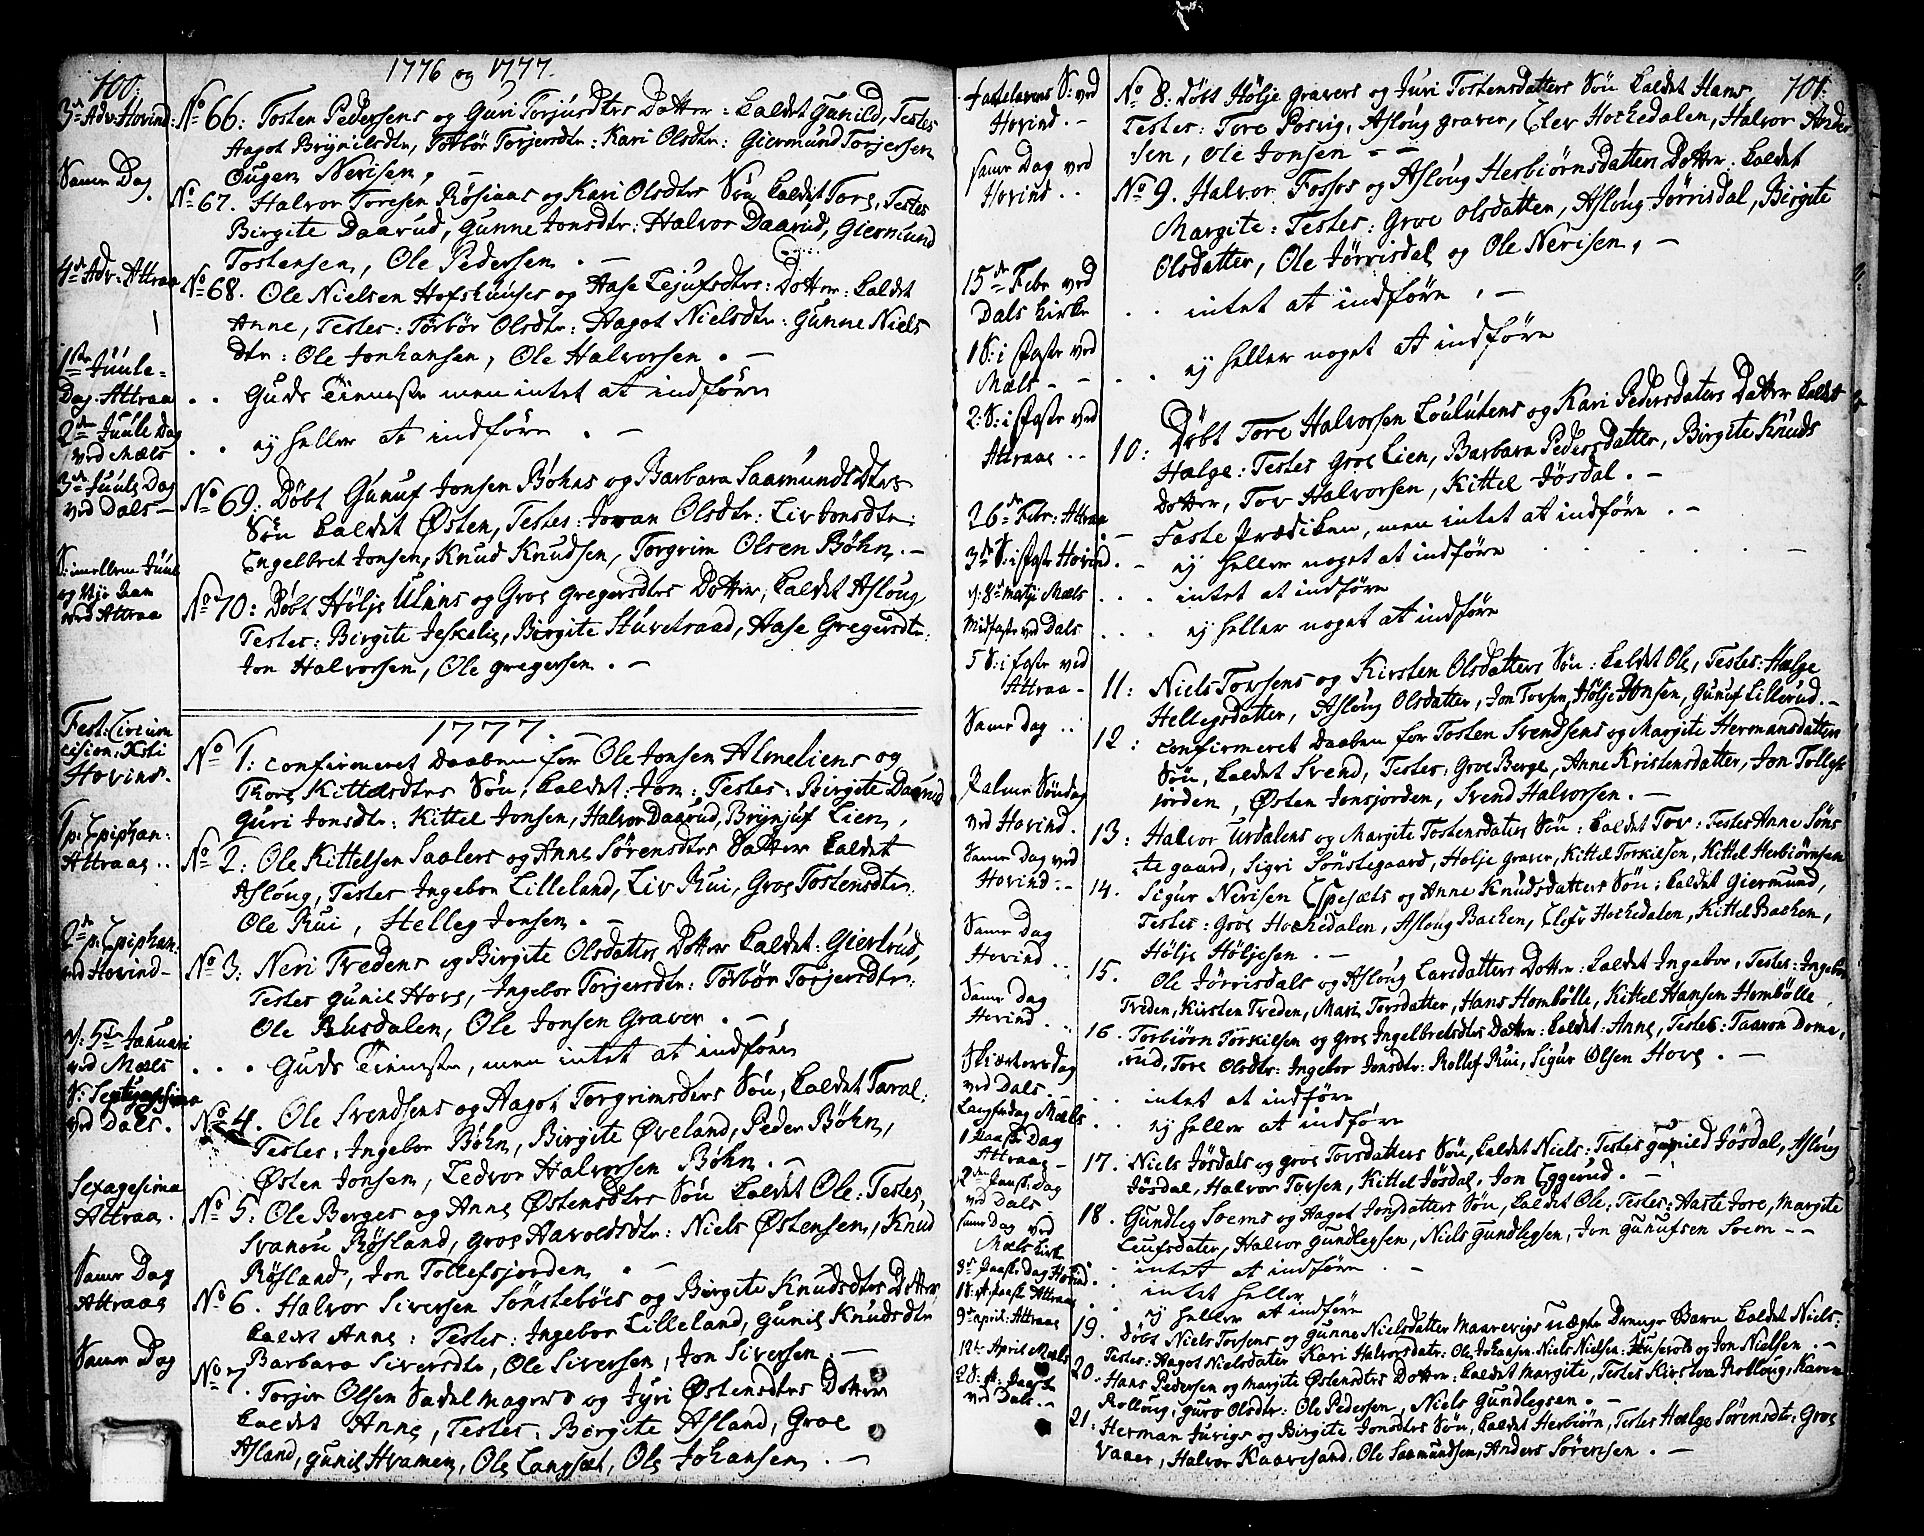 100.
1776 og 1777.
3die Adv: Hovind:
No 66: Tosten Pedersens og Guri Torjusdtrs Dotter: kaldet Gunild, Testes
Hagot Brynilsdtr, Torbør Torjersdtr: Kari Olsdtr: Giermund Torjersen
Ougen Nerisen. —
Samme Dag.
No 67. Halvor Toresen Røsiaas og Kari Olsdtrs Søn kaldet Tors, Testes
Birgite Daarud, Gunne Jonsdtr: Halvor Daarud, Giermund
Tostensen, Ole Pedersen. —
4de Adv: Attraa
No 68. Ole Nielsen Hofshuuses og Aase Lejufsdtrs: Dotter: kaldet
Anne, Testes: Torbør Olsdtr: Hagot Nielsdtr: Gunne Niels
dtr: Ole Jonhansen, Ole Halvorsen. —
1ste Juule-
Dag. Attraa
. . Guds Tieneste men intet at indføre
2den Juule Dag
ved Mæls
. . ej heller at indføre. —
3de Juule Dag
ved Dals —
No 69: Døbt Gunuf Jonsen Bøhns og Barbara Saamundsdtrs
Søn kaldet Østen, Testes: Joran Olsdtr: Liv Jonsdtr:
Engelbret Jonsen, Knud Knudsen, Torgrim Olsen Bøhn. —
S: imellem Juul
og Nye Aar
ved Attraa
No 70: Døbt Hølje Ulians og Groe Gregersdtrs Dotter, kaldet Asloug,
Testes: Birgite Jeskelie, Birgite Stuvelraad, Aase Gregersdtr:
Jon Halvorsen, Ole Gregersen. —
1777. —
Fest: Circum
cision: Xsti
Hovind.
No 1: confirmeret Daaben for Ole Jonsen Almeliens og
Thore Kittelsdtrs Søn, kaldet: Jon: Testes: Birgite Daarud
Guri Jonsdtr: Kittel Jonsen, Halvor Daarud, Brynjuf Lien,
1 p: Epiphan:
Attraae . .
No 2: Ole Kittelsen Saalers og Anne Sørensdtrs Dotter kaldet
Asloug, Testes Ingebor Lilleland, Liv Rui, Groe Tostensdtr:
Ole Rui, Helleg Jonsen. —
2den p. Epiphan:
ved Hovind —
No 3: Neri Tredens og Birgite Olsdatters Dotter kaldet: Giertrud,
Testes Gunil Hove, Ingebor Torjersdtr: Torbør Torjersdtr:
Ole Busdalen, Ole Jonsen Graver. —
d: 5te Januari
ved Mæls
. . . Guds Tieneste, men intet at indføre
S: Septuagesima
ved Dals.
No 4. Ole Svendsens og Hagot Torgrimsdtrs Søn, kaldet Taral:
Testes: Ingebor Bøhn, Birgite Øveland, Peder Bøhn,
Østen Jonsen, Ledvor Halvorsen Bøhn. —
Sexagesima
Attraa.
No 5: Ole Berges og Anne Østensdtrs Søn kaldet Ole: Testes,
Svanou Røsland, Groe Havoldsdtr: Niels Østensen, Knud
Røsland, Jon Tollefsjorden. —
Samme Dag
Attraae
No 6. Halvor Siversen Sønstebøes og Birgite Knudsdtrs Dotter
kaldet Anne: Testes: Ingebor Lilleland, Gunil Knudsdtr
Barbara Siversdtr, Ole Siversen, Jon Siversen. —
Samme Dag
No 7. Torjer Olsen Sadelmagers og Jyri Østensdtrs Dotter
kaldet Anne, Testes: Birgite Asland, Groe
Asland, Gunil Hvamen, Ole Langsæt, Ole Johansen. —
101.
Fastelavens S: ved
Hovind. —
No 8: Døbt Hølje Gravers og Juri Tostensdatters Søn kaldet Hans
Testes: Tore Posvig, Asloug Graver, Elev Hochedalen, Halvor Ander
sen, Ole Jonsen — —
Samme Dag ved
Hovind. .
No 9. Halvor Fosses og Asloug Herbiørnsdatters Dotter: kaldet
Margite: Testes: Groe Olsdatter, Asloug Jørrisdal, Birgite
Olsdatter, Ole Jørrisdal og Ole Nerisen. —
15de Febr ved
Dals kirke
. . intet at indføre. —
1 S: i faste ved
Mæls - -
. . ej heller noget at indføre
2: S: i faste ved
Attraae . .
10: Døbt Tore Halvorsen Loulutens og Kari Pedersdaters Dotter kaldet
Hælge: Testes Groe Lien, Barbara Pedersdatter, Birgite Knuds
Dotter, Tov Halvorsen, Kittel Jøsdal. —
26de Febr: Attraa
. — Faste Prædiken, men intet at indføre. —
3de S: i faste Hovind
. — ej heller noget at indføre
d: 8de Martji Mæls
. . . intet at indføre
Midfaste ved Dals
. . . ej heller noget at indføre
5 S: i faste ved
Attraa —
11: Niels Torsens og Kirsten Olsdatters Søn: kaldet Ole, Testes: Hælge
Hellegsdatter, Asloug Olsdatter, Jon Torsen, Hølje Jonsen, Gunuf Lillerud. —
Samme dag . .
12: confirmeret Daaben for Tosten Svendsens og Margite Hermansdatters
Søn, kaldet Svend, Testes: Groe Berge, Anne Kristensdatter, Jon Tollefs
jorden, Østen Jonsjorden, Svend Halvorsen. —
Palme Søndag
ved Hovind.
13: Halvor Urdalens og Margite Tostensdaters Søn: kaldet Tov: Testes Anne Søns
tegaard, Sigri Sønstegaard, Holje Graver, Kittel Torkilsen, Kittel Herbiørnsen
Samme Dag ved
Hovind: —
14. Sigur Nerisen Espesæts og Anne Knudsdatters Søn: kaldet Giermund,
Testes: Groe Hochedalen, Asloug Bachen, Elefv Hochedalen, Kittel Bachen,
Hølje Høljesen. —
Samme Dag
Hovind . .
15. Ole Jørrisdals og Asloug Larsdatters Dotter: kaldet Ingebor, Testes: Ingebor
Treden, Kirsten Treden, Mari Torsdatter, Hans Hombølle, Kittel Hansen Hombølle.
Samme Dag
Hovind. . .
16. Torbiørn Torkilsen og Groe Ingelbretsdtrs Dotter: kaldet: Anne, Testes: Taaron Dome
rud, Tore Olsdtr: Ingebor Jonsdtr: Rollef Rui, Sigur Olsen Hove. —
Skiertorsdag
ved Dals. —
. . intet at indføre
Langfredag Mæls
. . ej heller at indføre
1 Paaske Dag
Attraae —
17. Niels Jøsdals og Groe Torsdatters Søn, kaldet Niels: Testes Gunild Jøsdal, Asloug
Jøsdal, Halvor Torsen, Kittel Jøsdal, Jon Eggerud. —
2den Paask: dag
ved Dals
18. Gundleg Soems og Hagot Jonsdatters Søn, kaldet Ole: Testes: Aaste Jore, Margite
Leufsdater, Halvor Gundlegsen, Niels Gundlegsen, Jon Gunufsen Soem — —
Samme dag ved
Mæls kirke
. . intet at indføre . —
3de Paaske Dag Hovind.
. . intet heller
1 S: p. Paask Attraae
. . ej heller at indføre
9de April: Attraae
19. Døbt Niels Torsens og Gunne Nielsdatter Maarevigs uægte Drenge Barn kaldet Niels:
Testes: Hagot Nielsdater Kari Halvorsdatr: Ole Johansen Niels Nielsen og Jon Nielsen. —
12te April Mæls
20. Hans Pedersen og Margite Østensdtrs Dotter: kaldet Margite, Testes Kirsten Rolloug, Karen
Rolloug, Guro Olsdtr: Ole Pedersen, Niels Gundlegsen. —
2 S: p: Paaske
ved Dals. —
21: Herman Jurigs og Birgite Jonsdtrs Søn, kaldet Herbiørn, Testes Hælge Sørensdtr: Groe
Vaaer, Halvor Kaavesand, Ole Saamundsen, Anders Sørensen. —